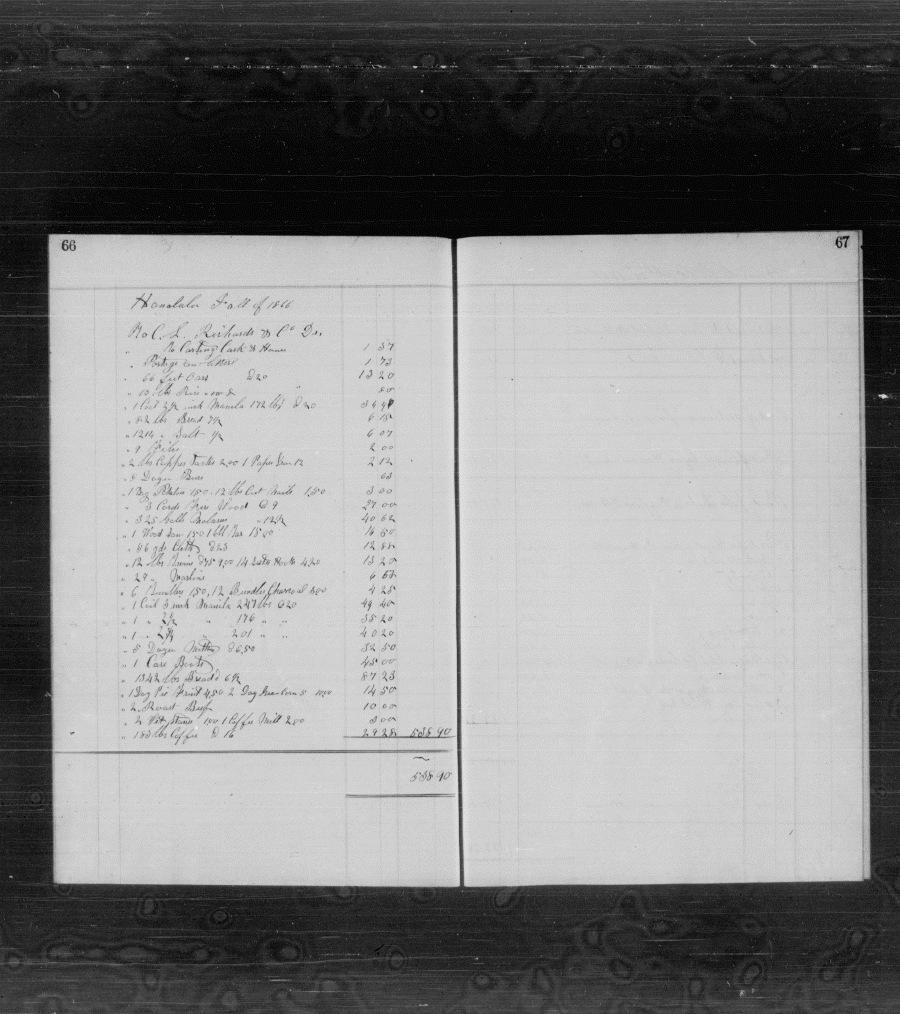 66
67
Honolulu Fall of 1866
To C. L. Richards & Co Dr.
To Carting Cask & 1 37
" Postage on letters 1 73
" 66 feet Oars @20 13 20
" 10 lbs Rice 80
" 1 Coil 2½ inch Manila 172 lbs @20 34 40
" 82 lbs Bread 7½ 6 15
" 1214 " Salt ½ 6 07
" 9 Files 2 00
" 2 lbs Copper Tacks 2.00 1 Paper 12 2 12
" 5 Dozen 63
" 1 150. 12 lbs Cut Nails 1,50 3 00
" 3 Cords Fire Wood @ 9 27 00
" 325 Galls Molasses 12½ 40 62
" 1 Wood Saw 1 50 1 bbl Tar 15 00 16 50
" 46 yds @28 12 88
" 12 lbs Twine @75 9,00 14 Hooks 4 20 13 20
" 29 " Marline 6 67
" 6 150, 12 Bundles Charcoal 4 25
" 1 Coil 3 inch Manila 247 lbs @20 49 40
" 1 " 2½ " 176 " " 35 20
" 1 " " 201 " " 40 20
" 5 Dozen @6,50 32 50
" 1 Case Boots 45 00
" 1342 lbs Bread @ 6½ 87 23
" 1 Doz Pie Fruit 4,50 2 Doz Green Corn 5 10 00 14 50
" 2 " Roast Beef 10 00
" 2 1,00 1 Coffee Mill 2 00 3 00
" 183 lbs Coffee @ 16 29 28 538 90
538 90